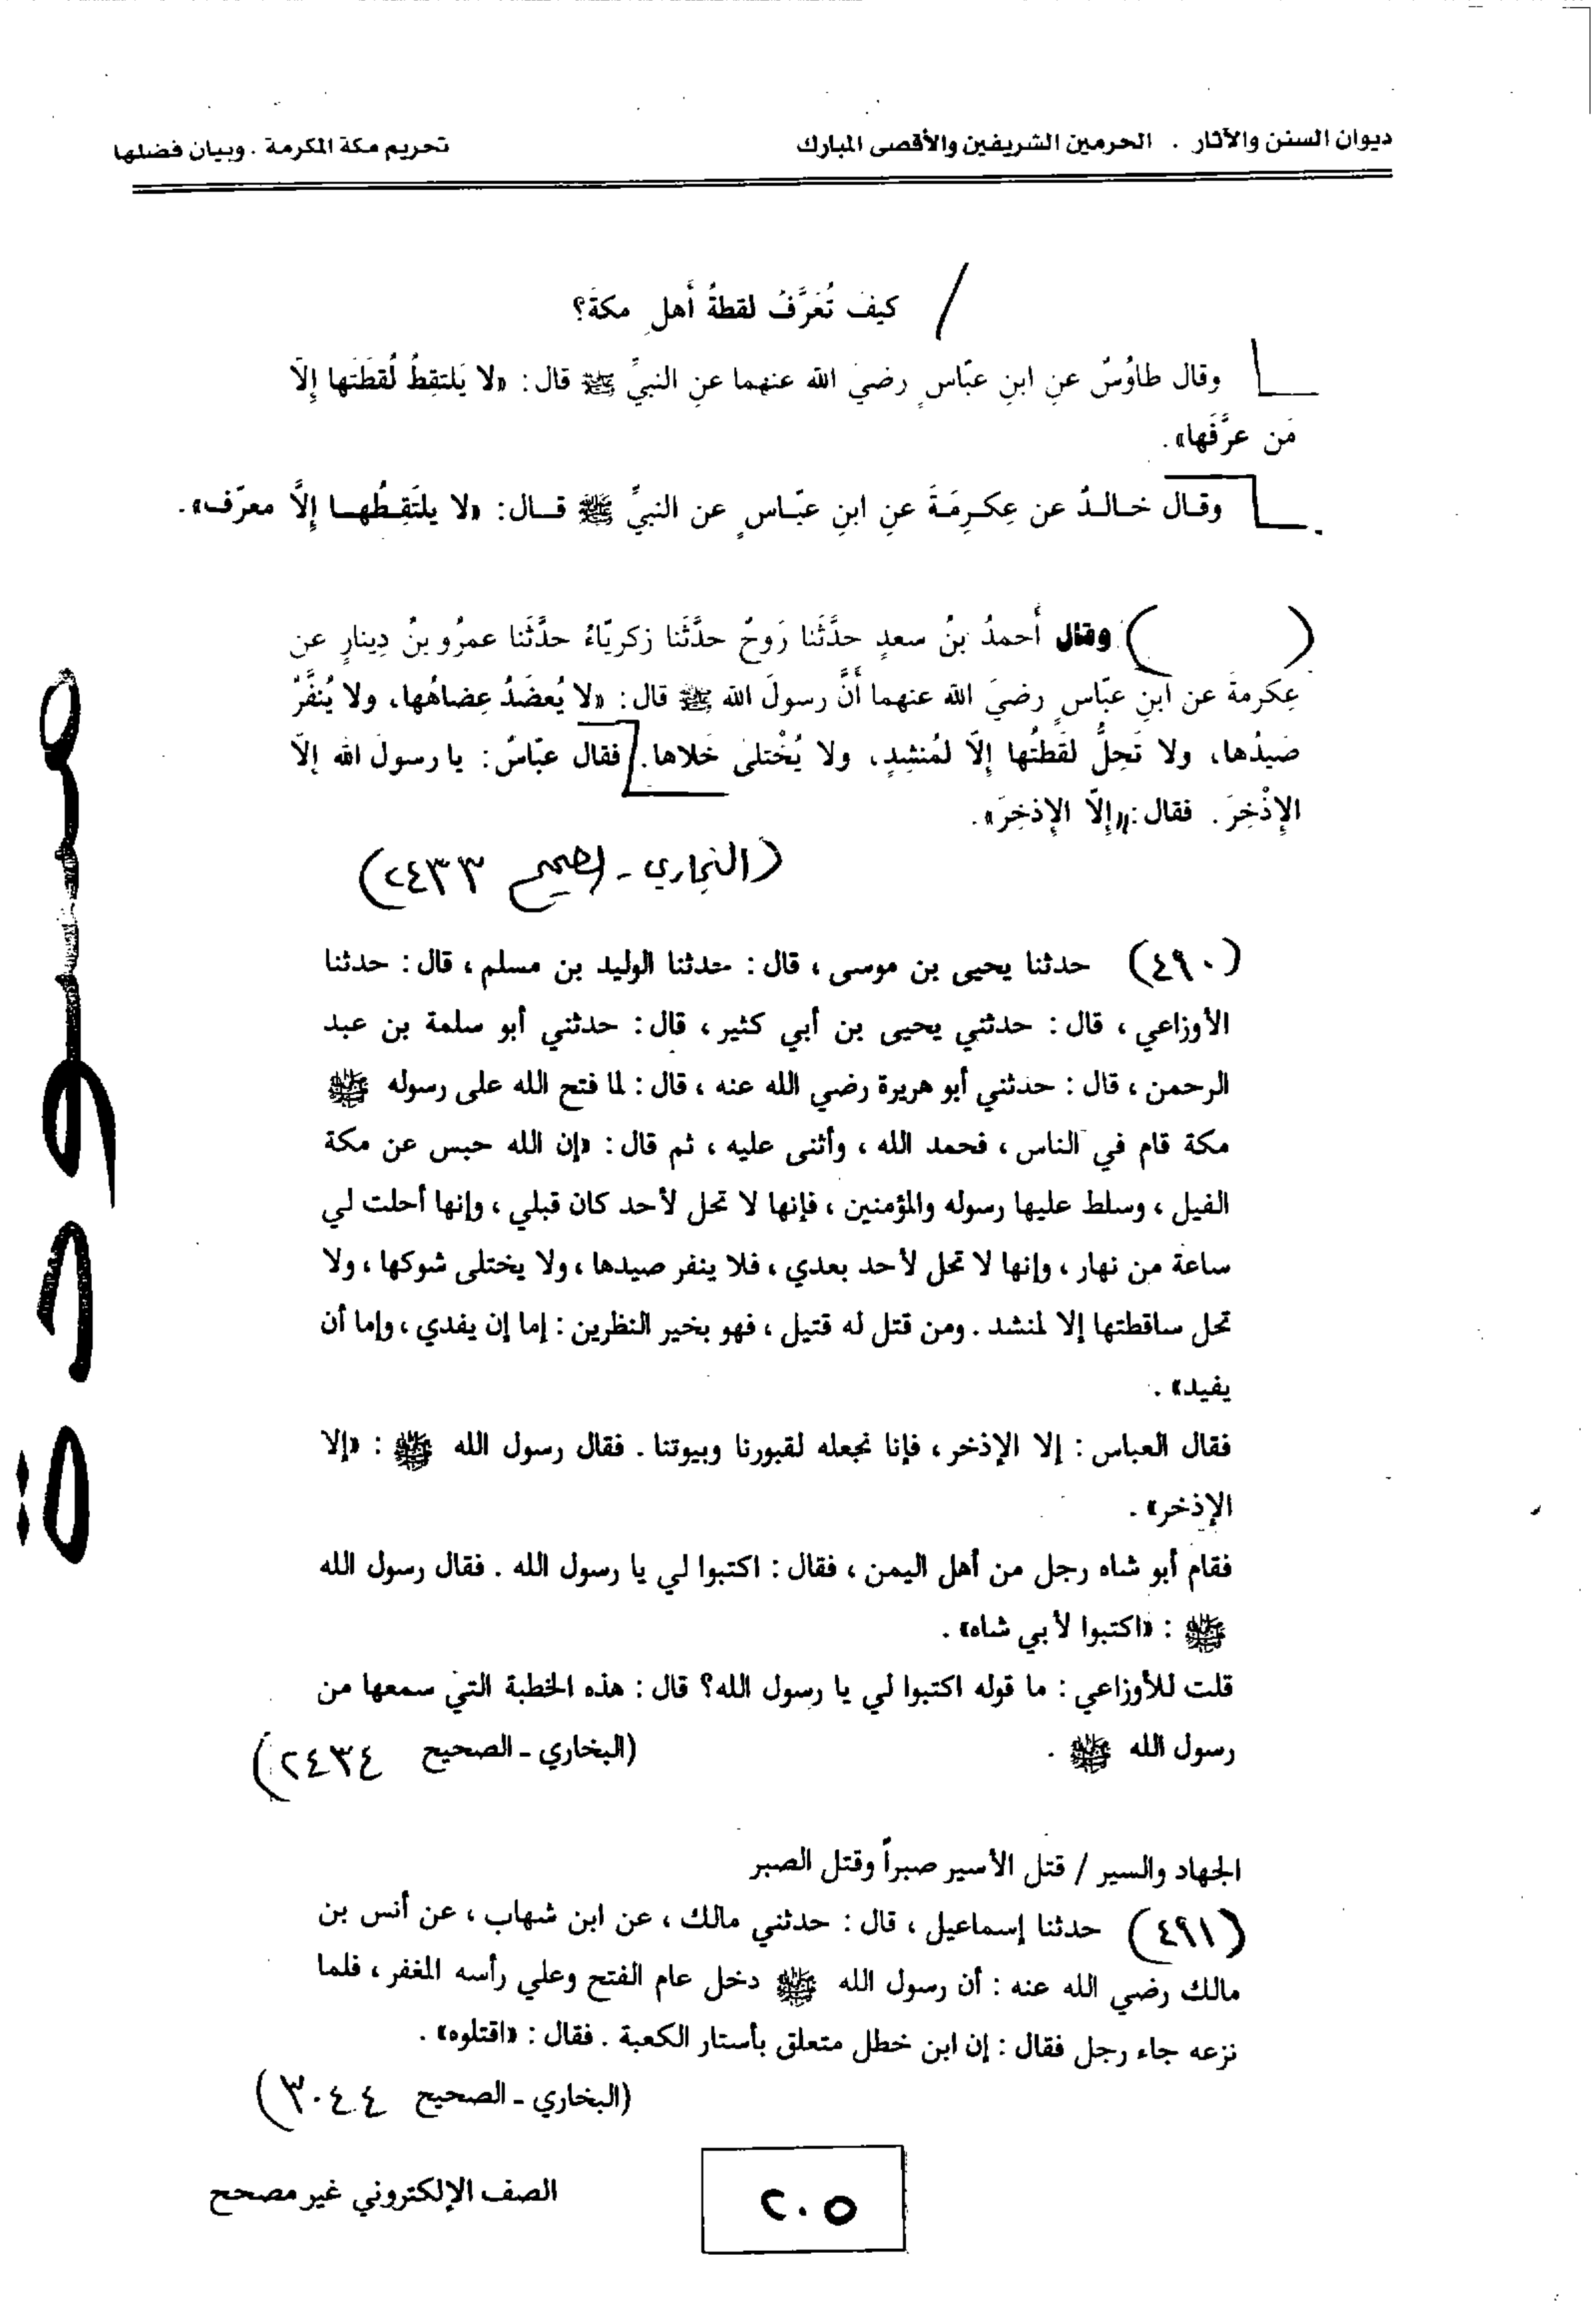 ديوان السنن والآثار . الحرمين الشريفين والأقصى المبارك تحريم مكة المكرمة . وبيان فضلها
/ كيفَ تُعَرَّفُ لقطةُ أهلِ مكةَ؟
وقال طاوُسٌ عنِ ابنِ عبّاسٍ رضيَ الله عنهما عنِ النبيِّ ﷺ قال: «لا يَلتقِطُ لُقَطَتَها إلّا
مَن عرَّفَها».
وقـال خـالـدٌ عن عِكـرِمَـةَ عنِ ابنِ عبّـاسٍ عن النبيِّ ﷺ قـال: «لا يلتَقِـطُهـا إلَّا معرّف».
( ) وقال أحمدُ بنُ سعدٍ حدَّثَنا رَوحٌ حدَّثَنا زكريّاءُ حدَّثَنا عمرُو بنُ دِينارٍ عن
عِكرمةَ عن ابنِ عبّاسٍ رضيَ الله عنهما أنَّ رسولَ الله ﷺ قال: «لا يُعضَدُ عِضاهُها، ولا يُنفَّرُ
صَيدُها، ولا تَحِلُّ لقَطتُها إلّا لمُنشِدٍ، ولا يُخْتلىٰ خَلاها. فقال عبّاسٌ: يا رسولَ الله إلّا
الإذْخِرَ. فقال: «إلّا الإذخِرَ».
(البخاري - الصحيح ٢٤٣٣)
(٤٩٠) حدثنا يحيى بن موسى ، قال : حدثنا الوليد بن مسلم ، قال : حدثنا
الأوزاعي ، قال : حدثني يحيى بن أبي كثير ، قال : حدثني أبو سلمة بن عبد
الرحمن ، قال : حدثني أبو هريرة رضي الله عنه ، قال : لما فتح الله على رسوله ﷺ
مكة قام في الناس ، فحمد الله ، وأثنى عليه ، ثم قال : «إن الله حبس عن مكة
الفيل ، وسلط عليها رسوله والمؤمنين ، فإنها لا تحل لأحد كان قبلي ، وإنها أحلت لي
ساعة من نهار ، وإنها لا تحل لأحد بعدي ، فلا ينفر صيدها ، ولا يختلى شوكها ، ولا
تحل ساقطتها إلا لمنشد . ومن قتل له قتيل ، فهو بخير النظرين : إما إن يفدي ، وإما أن
يفيد» .
فقال العباس : إلا الإذخر ، فإنا نجعله لقبورنا وبيوتنا . فقال رسول الله ﷺ : «إلا
الإذخر» .
فقام أبو شاه رجل من أهل اليمن ، فقال : اكتبوا لي يا رسول الله . فقال رسول الله
ﷺ : «اكتبوا لأبي شاه» .
قلت للأوزاعي : ما قوله اكتبوا لي يا رسول الله؟ قال : هذه الخطبة التي سمعها من
رسول الله ﷺ . (البخاري - الصحيح ٢٤٣٤)
الجهاد والسير / قتل الأسير صبراً وقتل الصبر
(٤٩١) حدثنا إسماعيل ، قال : حدثني مالك ، عن ابن شهاب ، عن أنس بن
مالك رضي الله عنه : أن رسول الله ﷺ دخل عام الفتح وعلي رأسه المغفر ، فلما
نزعه جاء رجل فقال : إن ابن خطل متعلق بأستار الكعبة . فقال : «اقتلوه» .
(البخاري - الصحيح ٣٠٤٤)
٢٠٥
الصف الإلكتروني غير مصحح
مسودة